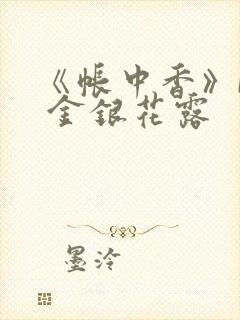 《帐中香》
金银花露
墨泠